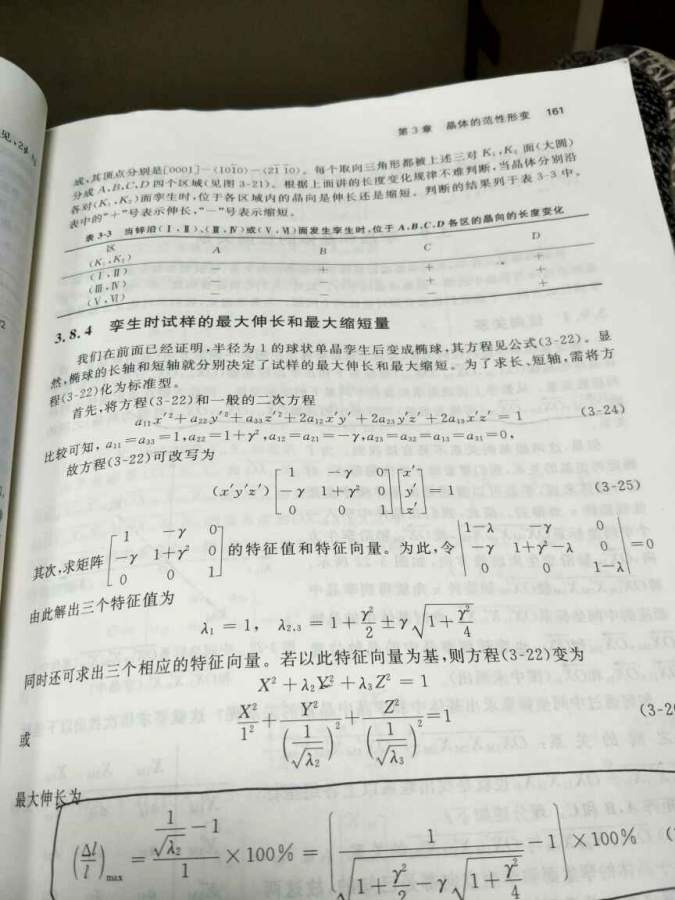 第3章 晶体的范性形变 161
成,其顶点分别是[0001]—⟨101̄0⟩—⟨2̄1̄1̄0⟩。每个取向三角形都被上述三对 K₁,K₂ 面(大圆)
分成 A,B,C,D 四个区域(见图 3-21)。根据上面讲的长度变化规律不难判断,当晶体分别沿
各对(K₁,K₂)面孪生时,位于各区域内的晶向是伸长还是缩短。判断的结果列于表 3-3 中。
表中的"+"号表示伸长,"−"号表示缩短。
表3-3 当锌沿(Ⅰ,Ⅱ),(Ⅲ,Ⅳ)或(Ⅴ,Ⅵ)面发生孪生时,位于 A,B,C,D 各区的晶向的长度变化
区 A B C D
(K₁,K₂)
(Ⅰ,Ⅱ) − + + +
(Ⅲ,Ⅳ) − − + +
(Ⅴ,Ⅵ) − − − +
3.8.4 孪生时试样的最大伸长和最大缩短量
我们在前面已经证明,半径为 1 的球状单晶孪生后变成椭球,其方程见公式(3-22)。显
然,椭球的长轴和短轴就分别决定了试样的最大伸长和最大缩短。为了求长、短轴,需将方
程(3-22)化为标准型。
首先,将方程(3-22)和一般的二次方程
a₁₁x′² + a₂₂y′² + a₃₃z′² + 2a₁₂x′y′ + 2a₂₃y′z′ + 2a₁₃x′z′ = 1 (3-24)
比较可知, a₁₁ = a₃₃ = 1, a₂₂ = 1 + γ², a₁₂ = a₂₁ = −γ, a₂₃ = a₃₂ = a₁₃ = a₃₁ = 0,
故方程(3-22)可改写为
(x′y′z′) [1 −γ 0; −γ 1+γ² 0; 0 0 1] [x′; y′; z′] = 1 (3-25)
其次,求矩阵 [1 −γ 0; −γ 1+γ² 0; 0 0 1] 的特征值和特征向量。为此,令 |1−λ −γ 0; −γ 1+γ²−λ 0; 0 0 1−λ| = 0
由此解出三个特征值为
λ₁ = 1, λ₂,₃ = 1 + γ²/2 ± γ√(1 + γ²/4)
同时还可求出三个相应的特征向量。若以此特征向量为基,则方程(3-22)变为
X² + λ₂Y² + λ₃Z² = 1
或 X²/1² + Y²/(1/√λ₂)² + Z²/(1/√λ₃)² = 1 (3-2
最大伸长为
(Δl/l)max = (1/√λ₂ − 1)/1 × 100% = [1/√(1 + γ²/2 − γ√(1 + γ²/4)) − 1] × 100% (